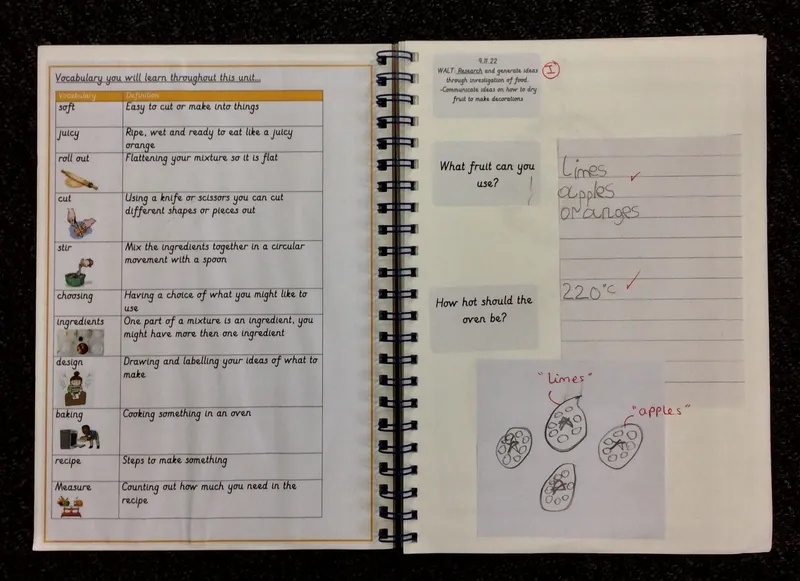 Vocabulary you will learn throughout this unit...
Vocabulary Definition
soft Easy to cut or make into things
juicy Ripe, wet and ready to eat like a juicy
orange
roll out Flattening your mixture so it is flat
cut Using a knife or scissors you can cut
different shapes or pieces out
stir Mix the ingredients together in a circular
movement with a spoon
choosing Having a choice of what you might like to
use
ingredients One part of a mixture is an ingredient, you
might have more then one ingredient
design Drawing and labelling your ideas of what to
make
baking Cooking something in an oven
recipe Steps to make something
Measure Counting out how much you need in the
recipe
9.11.22
WALT: Research and generate ideas
through investigation of food.
-Communicate ideas on how to dry
fruit to make decorations
I
What fruit can you
use?
limes
apples
oranges
How hot should the
oven be?
220°C
"limes"
"apples"